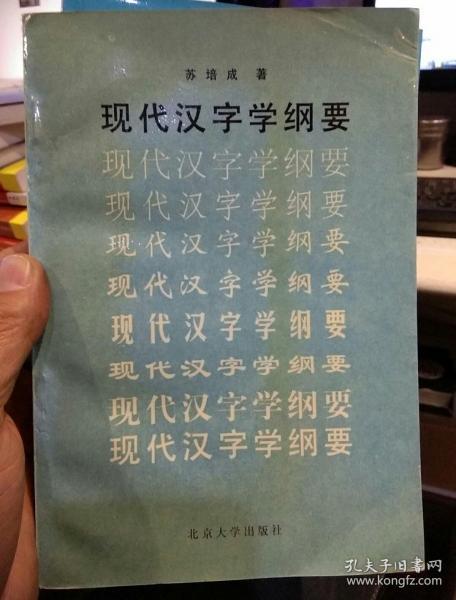 苏培成 著
现代汉字学纲要
现代汉字学纲要
现代汉字学纲要
现代汉字学纲要
现代汉字学纲要
现代汉字学纲要
现代汉字学纲要
现代汉字学纲要
现代汉字学纲要
北京大学出版社
孔夫子旧书网
www.kongfz.com